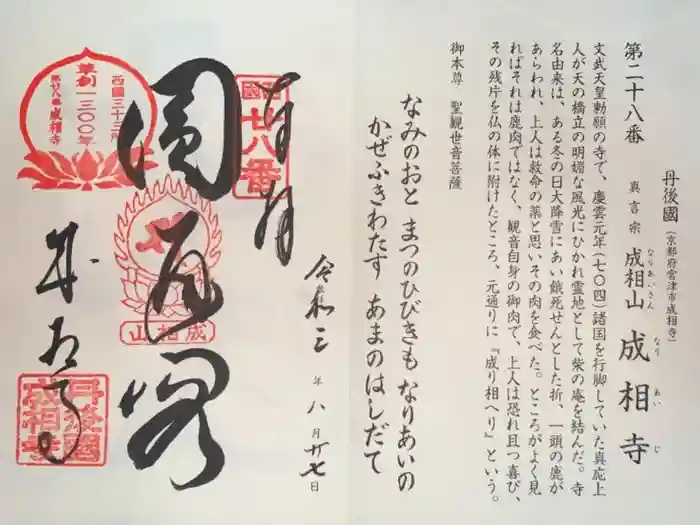 丹後國（京都府宮津市成相寺）
第二十八番 真言宗 成相山 成相寺
なりあいさん なり あい じ
文武天皇勅願の寺で、慶雲元年（七〇四）諸国を行脚していた真応上
人が天の橋立の明媚な風光にひかれ霊地として柴の庵を結んだ。寺
名由来は、ある冬の日大降雪にあい餓死せんとした折、一頭の鹿が
あらわれ、上人は救命の薬と思いその肉を食べた。ところがよく見
ればそれは鹿肉ではなく、観音自身の御肉で、上人は恐れ且つ喜び、
その残片を仏の体に附けたところ、元通りに『成り相へり』という。
御本尊 聖観世音菩薩
なみのおと まつのひびきも なりあいの
かぜふきわたす あまのはしだて
令和三年八月廿七日
奉拝
西國
廿八番
圓通閣
成相山
成相寺
西國三十三所
草創
一三〇〇年
第廿八番 成相寺
丹後國
成相寺